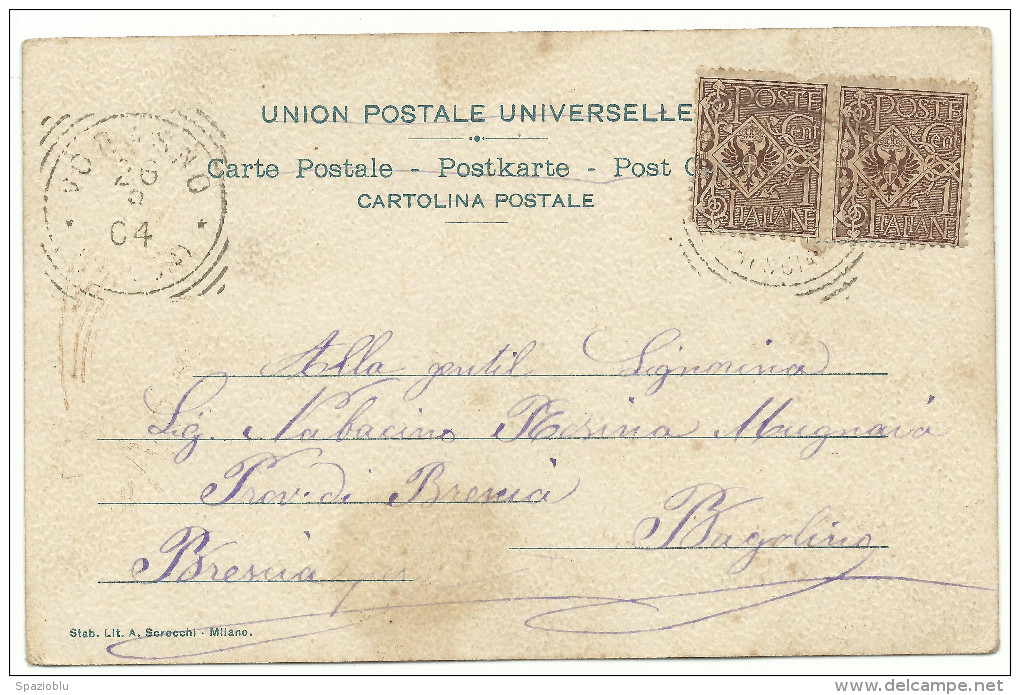 UNION POSTALE UNIVERSELLE
Carte Postale - Postkarte - Post
CARTOLINA POSTALE
POSTE
1 Cent
1
ITALIANE
POSTE
1 Cent
1
ITALIANE
04
Alla gentil Signorina
Sig. Nabacino Rosina Mugnaia
Prov. di Brescia
Bagolino
Brescia
Stab. Lit. A. Scrocchi - Milano.
Spazioblu
www.delcampe.net